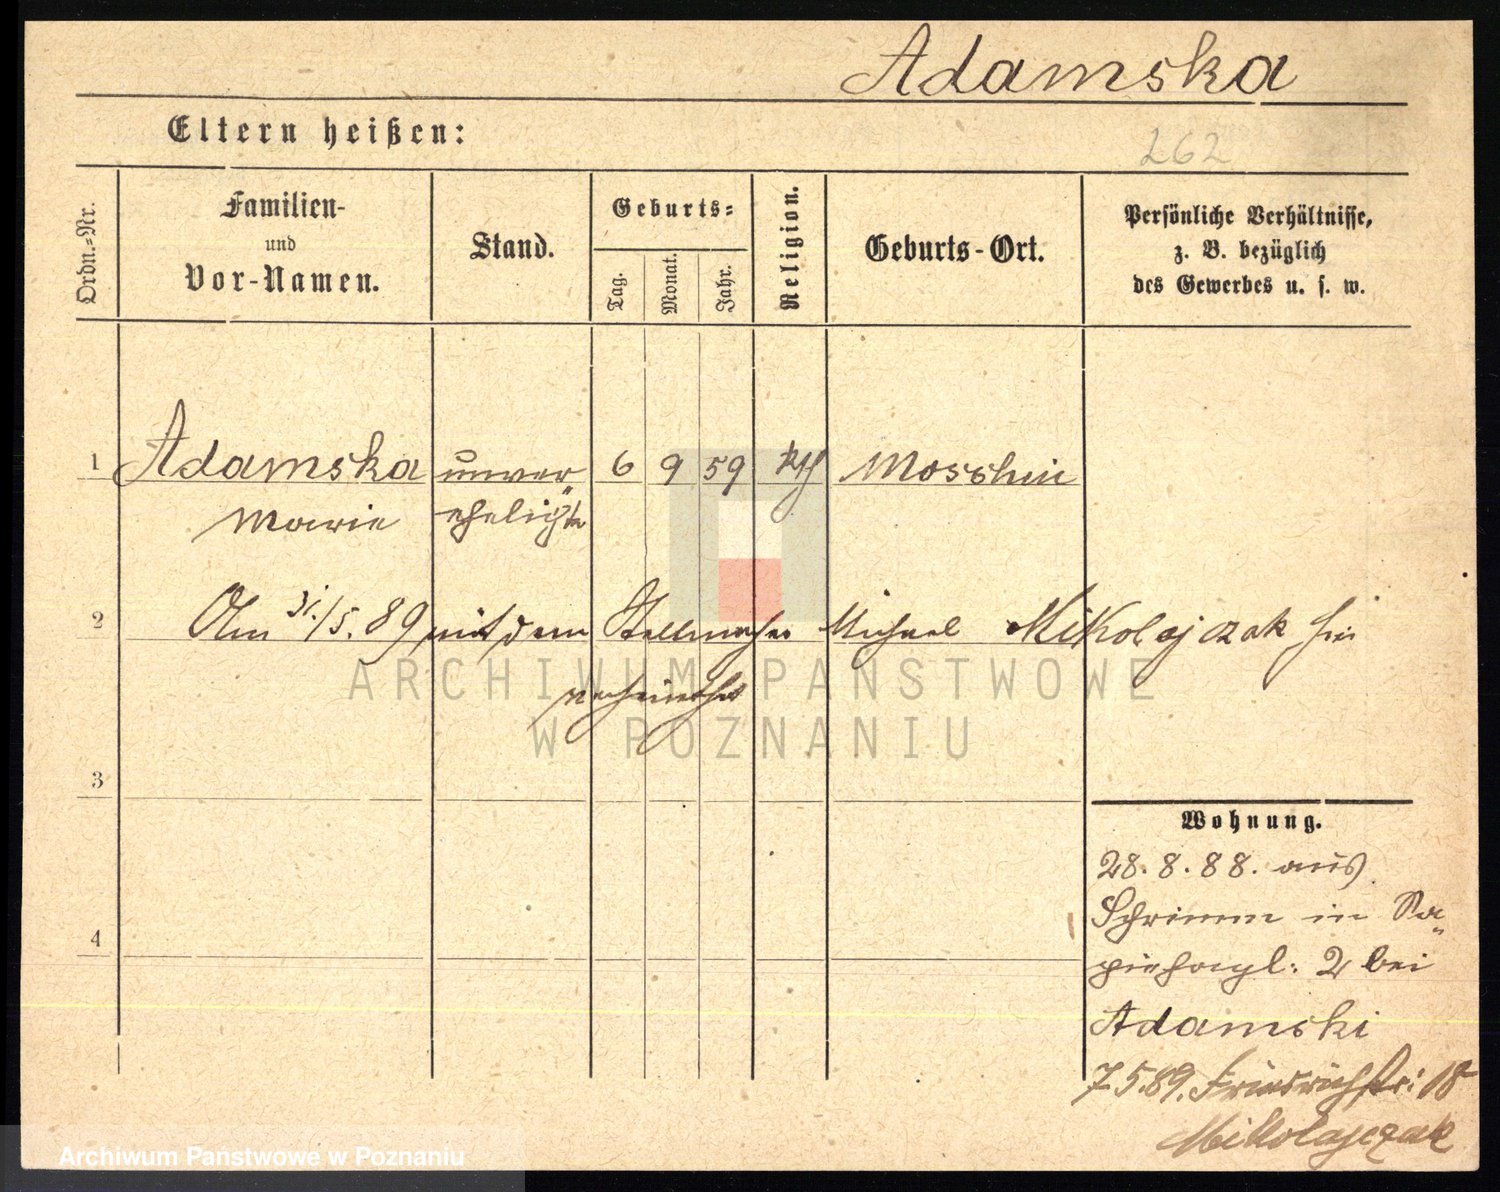 Adamska
Eltern heißen:
262
Ordn.-Nr.
Familien-
und
Vor-Namen.
Stand.
Geburts-
Tag.
Monat.
Jahr.
Religion.
Geburts-Ort.
Persönliche Verhältnisse,
z. B. bezüglich
des Gewerbes u. s. w.
1 Adamska unver- 6 9 59 kth Mosschin
Marie ehelichte
2 Am 31./5. 89 mit dem Stellmacher Michael Mikolajczak hier
verheirathet
ARCHIWUM PAŃSTWOWE
W POZNANIU
3
Wohnung.
28. 8. 88. aus
Schrimm in Sa-
piehapl: 2 bei
4
Adamski
7.5.89. Friedrichstr: 18
Mikolajczak
Archiwum Państwowe w Poznaniu